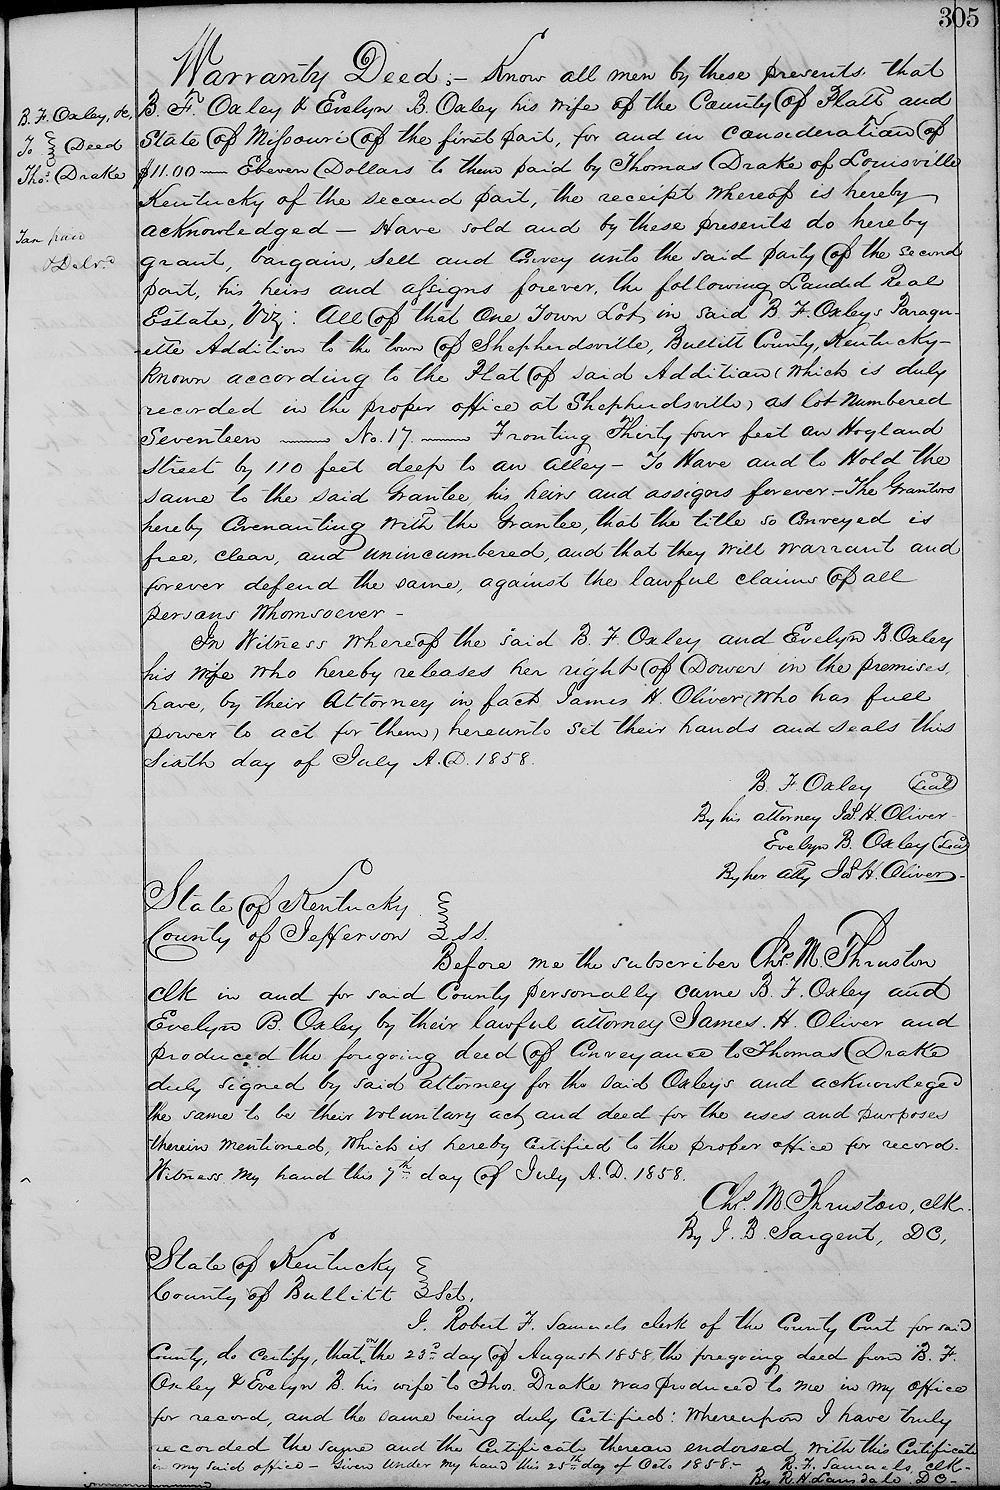 305
B. F. Oxley, &c,
To Deed
Thos. Drake
Tax paid
& Delv.d
Warranty Deed:- Know all men by these presents that
B. F. Oxley & Evelyn B. Oxley his wife of the County of Platt and
State of Missouri of the first part, for and in consideration of
$11.00 — Eleven Dollars to them paid by Thomas Drake of Louisville
Kentucky of the second part, the receipt whereof is hereby
acknowledged — Have sold and by these presents do hereby
grant, bargain, sell and Convey unto the said party of the second
part, his heirs and assigns forever, the following Landed Real
Estate, Viz: All of that One Town Lot, in said B. F. Oxleys Paraqu-
-ette Addition to the town of Shepherdsville, Bullitt County, Kentucky-
known according to the Plat of said Addition (which is duly
recorded in the proper office at Shepherdsville) as lot Numbered
Seventeen —— No. 17. —— Fronting Thirty four feet on Hogland
Street by 110 feet deep to an alley – To Have and to Hold the
same to the said Grantee his heirs and assigns forever – The Grantors
hereby Covenanting With the Grantee, that the title so Conveyed is
free, clear, and unincumbered, and that they will warrant and
forever defend the same, against the lawful claims of all
persons Whomsoever –
In Witness Whereof the said B. F Oxley and Evelyn B Oxley
his wife who hereby releases her right of Dower in the premises,
have, by their Attorney in fact James H. Oliver (who has full
power to act for them) hereunto set their hands and seals this
Sixth day of July A. D. 1858.
B. F. Oxley (Seal)
By his attorney Js. H. Oliver-
Evelyn B. Oxley (Seal)
By her atty Js. H. Oliver-
State of Kentucky
County of Jefferson SS.
Before me the subscriber Chs. M. Thruston
clk in and for said County personally came B. F. Oxley and
Evelyn B. Oxley by their lawful attorney James. H. Oliver and
produced the foregoing deed of Conveyance to Thomas Drake
duly signed by said attorney for the said Oxley's and acknowleged
the same to be their voluntary act and deed for the uses and purposes
therein mentioned, Which is hereby Certified to the proper office for record.
Witness my hand this 7th day of July A. D. 1858.
Chs. M. Thruston, clk.
By J. B. Sargent, DC,
State of Kentucky
County of Bullitt Sct.
I. Robert F. Samuels clerk of the County Court for said
County, do Certify, that on the 23d day of August 1858, the foregoing deed from B. F.
Oxley & Evelyn B. his wife to Thos. Drake was produced to me in my office
for record, and the same being duly Certified: Whereupon I have truly
recorded the same and the Certificate thereon endorsed, with this Certificate
in my said office – Given Under My hand this 25th day of Octo 1858.- R. F. Samuels, clk-
By R. H. Lansdale DC-